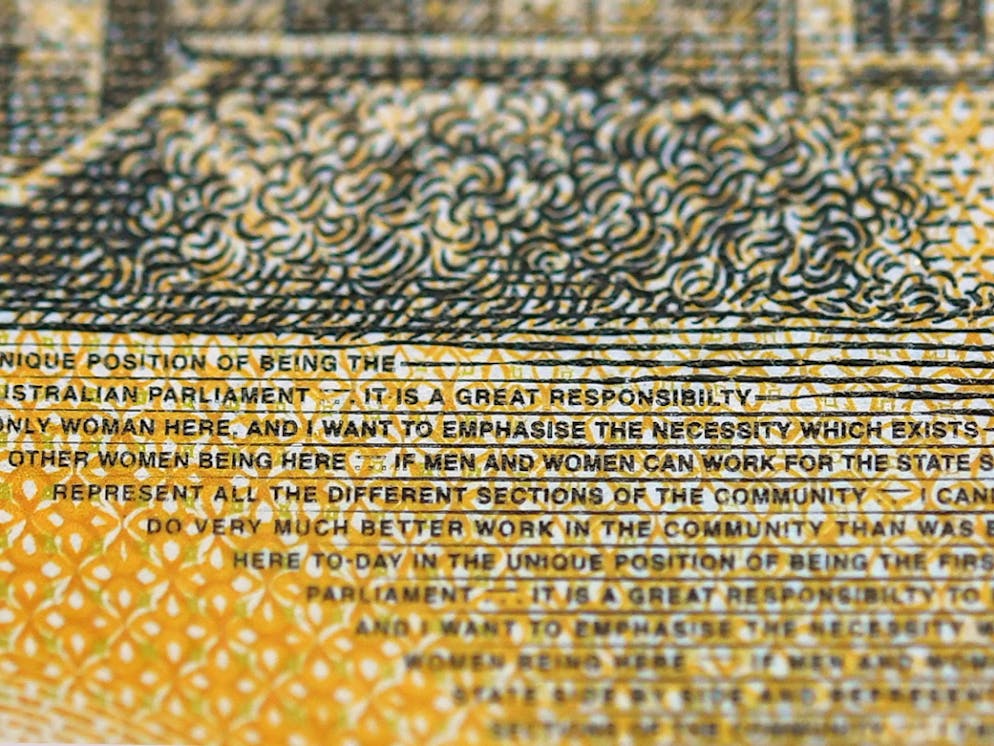 NIQUE POSITION OF BEING THE
STRALIAN PARLIAMENT —. IT IS A GREAT RESPONSIBILTY
ONLY WOMAN HERE, AND I WANT TO EMPHASISE THE NECESSITY WHICH EXISTS
OTHER WOMEN BEING HERE —. IF MEN AND WOMEN CAN WORK FOR THE STATE S
REPRESENT ALL THE DIFFERENT SECTIONS OF THE COMMUNITY — I CAN
DO VERY MUCH BETTER WORK IN THE COMMUNITY THAN WAS
HERE TO-DAY IN THE UNIQUE POSITION OF BEING THE FIRS
PARLIAMENT —. IT IS A GREAT RESPONSIBILTY TO
AND I WANT TO EMPHASISE THE NECESSITY
WOMEN BEING HERE —. IF MEN AND WOM
STATE SIDE BY SIDE AND REPRESEN
SECTIONS OF THE COMMUNITY